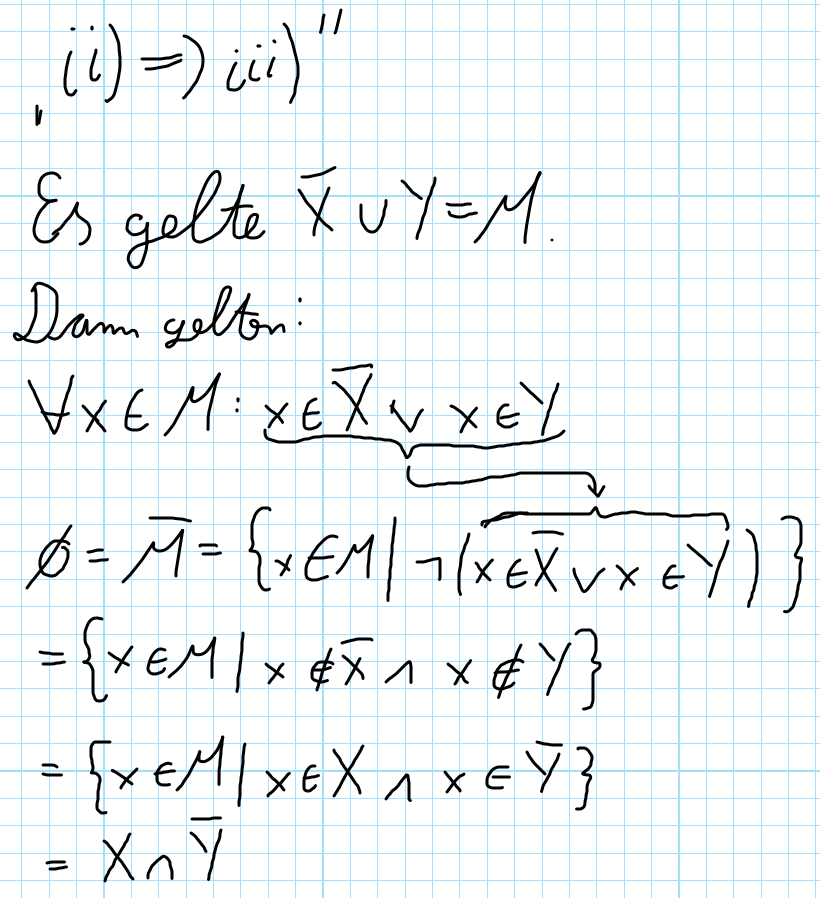 „ii) => iii)"
Es gelte X̅ ∪ Y = M.
Dann gelten:
∀x ∈ M: x ∈ X̅ ∨ x ∈ Y
∅ = M̅ = {x ∈ M | ¬(x ∈ X̅ ∨ x ∈ Y)}
= {x ∈ M | x ∉ X̅ ∧ x ∉ Y}
= {x ∈ M | x ∈ X ∧ x ∈ Y̅}
= X ∩ Y̅